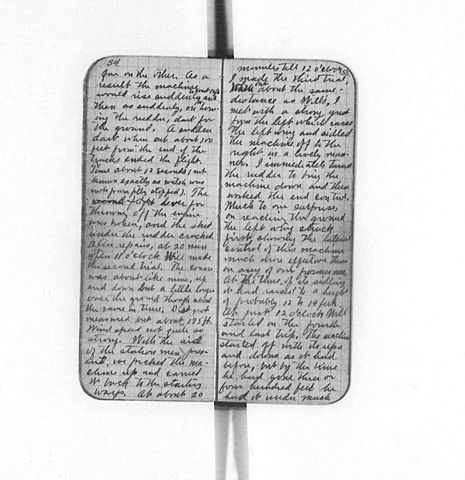 54
far on the other. As a
result the machine would rise suddenly
and then as suddenly, on turn-
ing the rudder, dart for
the ground. A sudden
dart when out about 100
feet from the end of the
tracks ended the flight.
Time about 12 seconds (not
known exactly as watch was
not promptly stopped). The
lever for
throwing off the engine
was broken, and the skid
under the rudder cracked.
After repairs, at 20 min.
after 11 o'clock Will made
the second trial. The course
was about like mine, up
and down but a little longer
over the ground though about
the same in time. Dist. not
measured but about 175 ft.
Wind speed not quite so
strong. With the aid
of the station men pres-
ent, we picked the ma-
chine up and carried
it back to the starting
ways. At about 20
minutes till 12 o'clock
I made the third trial.
When out about the same
distance as Will's, I
met with a strong gust
from the left which raised
the left wing and sidled
the machine off to the
right in a lively man-
ner. I immediately turned
the rudder to bring the
machine down and then
worked the end control.
Much to our surprise,
on reaching the ground
the left wing struck
first, showing the lateral
control of this machine
much more effective than
on any of our former ones.
At the time of its sidling
it had raised to a height
of probably 12 to 14 feet.
At just 12 o'clock Will
started on the fourth
and last trip. The machine
started off with its ups
and downs as it had
before, but by the time
he had gone three or
four hundred feet he
had it under much